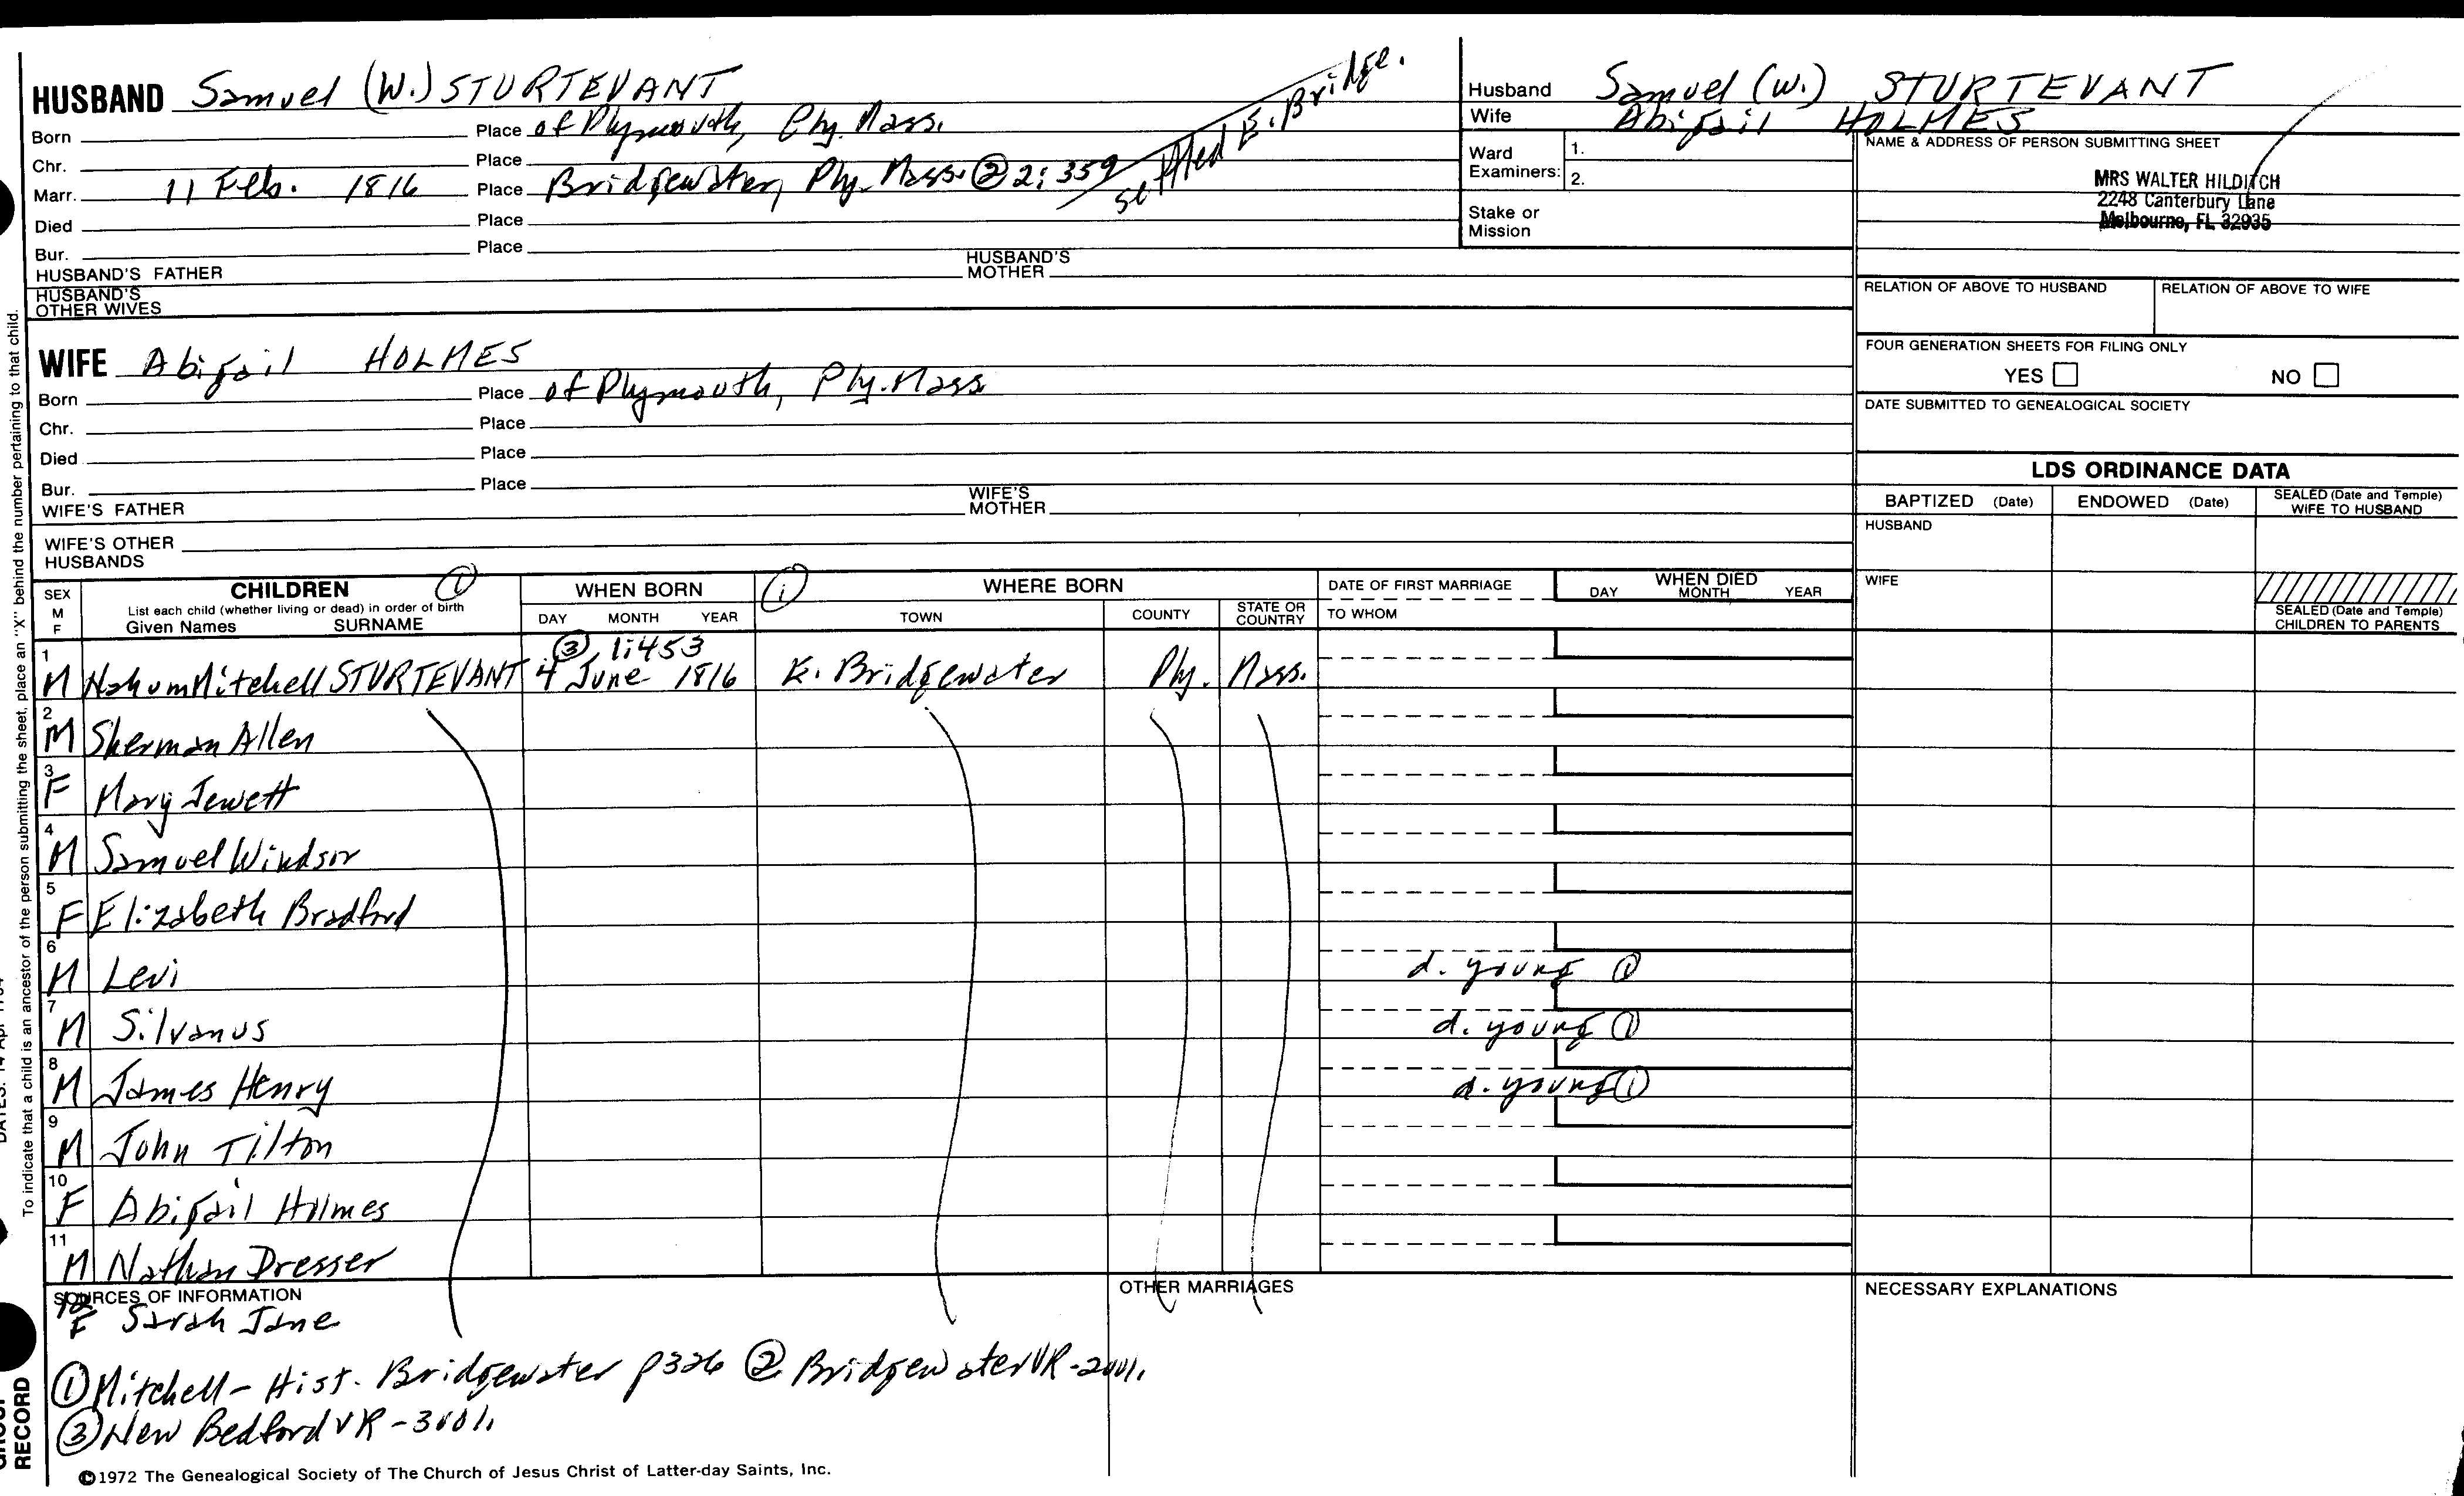 HUSBAND Samuel (W.) STURTEVANT
Born Place of Plymouth, Ply. Mass.
Chr. Place
Marr. 11 Feb. 1816 Place Bridgewater, Ply. Mass. ② 2:359 settled E. Bridge.
Died Place
Bur. Place
HUSBAND'S FATHER HUSBAND'S MOTHER
HUSBAND'S OTHER WIVES
WIFE Abigail HOLMES
Born Place of Plymouth, Ply. Mass
Chr. Place
Died Place
Bur. Place
WIFE'S FATHER WIFE'S MOTHER
WIFE'S OTHER HUSBANDS
Husband Samuel (W.) STURTEVANT
Wife Abigail HOLMES
Ward Examiners: 1.
2.
Stake or Mission
NAME & ADDRESS OF PERSON SUBMITTING SHEET
MRS WALTER HILDITCH
2248 Canterbury Lane
Melbourne, FL 32935
RELATION OF ABOVE TO HUSBAND RELATION OF ABOVE TO WIFE
FOUR GENERATION SHEETS FOR FILING ONLY
YES NO
DATE SUBMITTED TO GENEALOGICAL SOCIETY
LDS ORDINANCE DATA
BAPTIZED (Date) ENDOWED (Date) SEALED (Date and Temple) WIFE TO HUSBAND
HUSBAND
WIFE
SEALED (Date and Temple) CHILDREN TO PARENTS
SEX M F
CHILDREN ①
List each child (whether living or dead) in order of birth
Given Names SURNAME
WHEN BORN
DAY MONTH YEAR
① WHERE BORN
TOWN COUNTY STATE OR COUNTRY
DATE OF FIRST MARRIAGE
TO WHOM
WHEN DIED
DAY MONTH YEAR
③ 1:453
1 M Nahum Mitchell STURTEVANT 4 June 1816 E. Bridgewater Ply. Mass.
2 M Sherman Allen
3 F Mary Jewett
4 M Samuel Windsor
5 F Elizabeth Bradford
6 M Levi d. young ①
7 M Silvanus d. young ①
8 M James Henry d. young ①
9 M John Tilton
10 F Abigail Holmes
11 M Nathan Dresser
SOURCES OF INFORMATION OTHER MARRIAGES NECESSARY EXPLANATIONS
12 F Sarah Jane
① Mitchell - Hist. Bridgewater p326 ② Bridgewater VR - 2vol.
③ New Bedford VR - 3vol.
© 1972 The Genealogical Society of The Church of Jesus Christ of Latter-day Saints, Inc.
To indicate that a child is an ancestor of the person submitting the sheet, place an "X" behind the number pertaining to that child.
RECORD